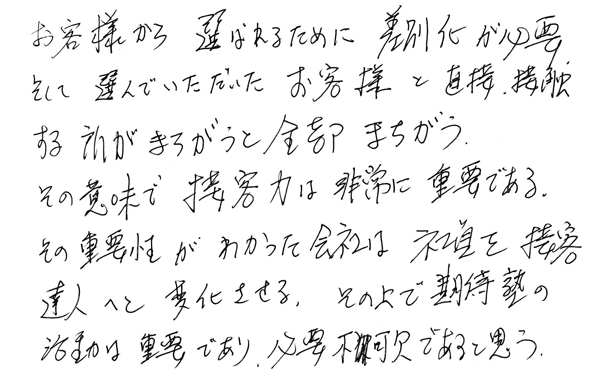 お客様から 選ばれるために 差別化が必要、
そして 選んでいただいた お客様と直接、接触
する所がまちがうと全部まちがう。
その意味で接客力は非常に重要である。
その重要性がわかった会社は社員を接客
達人へと変化させる。その上で期待塾の
活動は重要であり、必要不可欠であると思う。